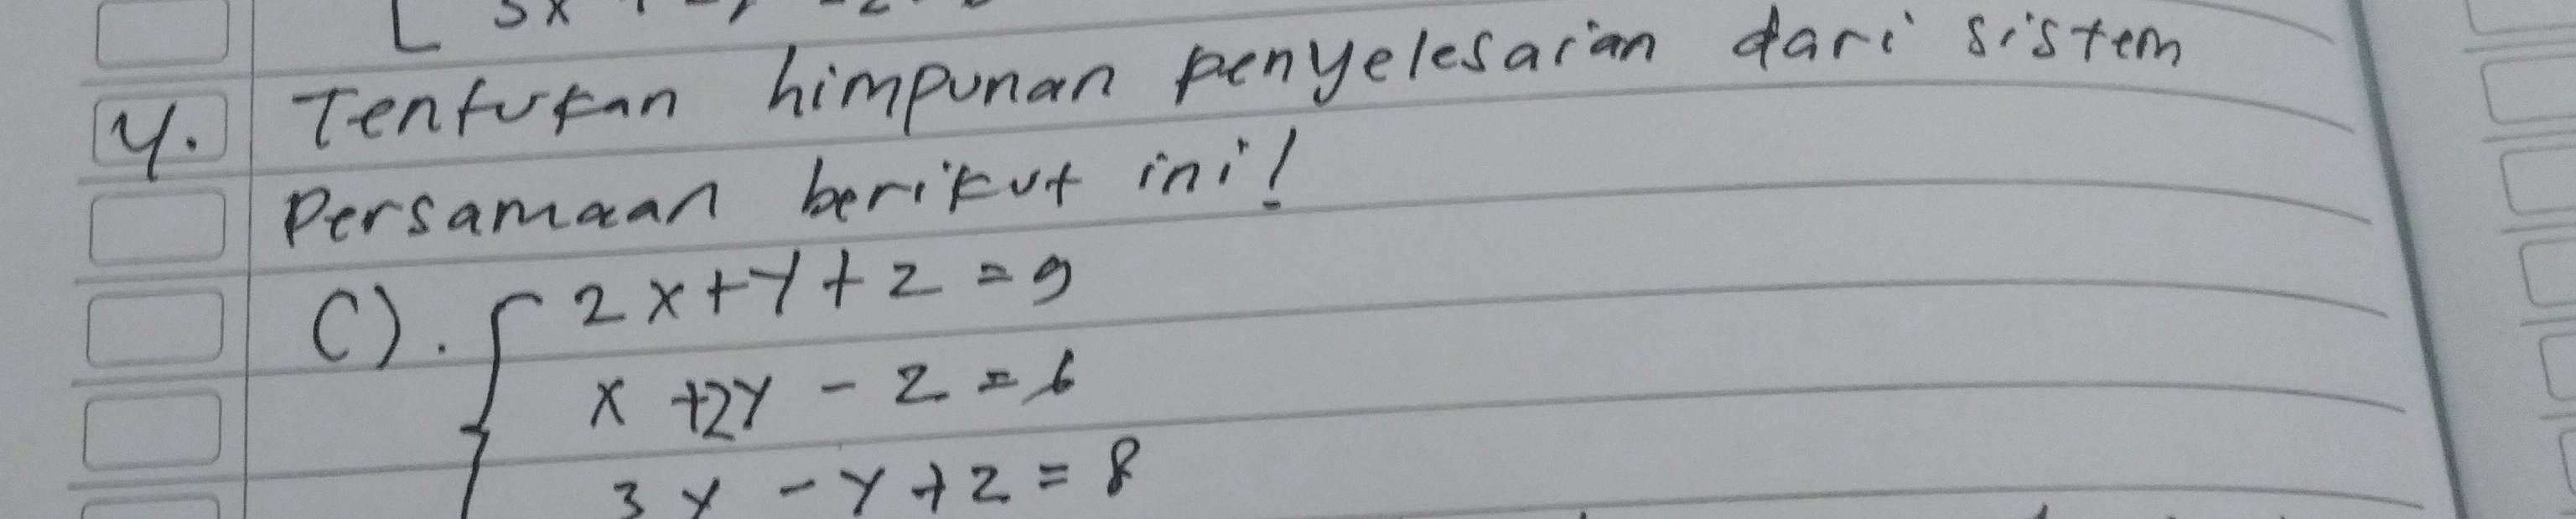 4. Tentukan himpunan penyelesaian dari sistem
Persamaan berikut ini!
C). { 2x+y+z=9
x+2y-z=6
3x-y+z=8